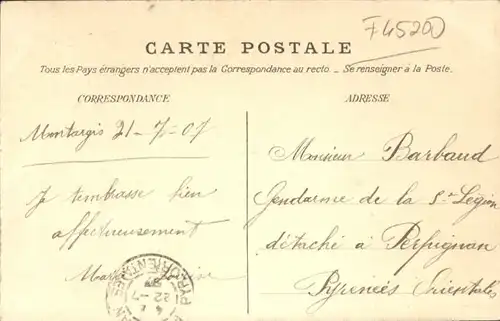 F45200
CARTE POSTALE
Tous les Pays étrangers n'acceptent pas la Correspondance au recto. _ Se renseigner à la Poste.
CORRESPONDANCE
Montargis 21-7-07
Je t'embrasse bien
affectueusement
ADRESSE
Monsieur Barbaud
Gendarme de la 5e Légion
détaché à Perpignan
Pyrénées Orientales
PYR. ORIENTALES
22-7